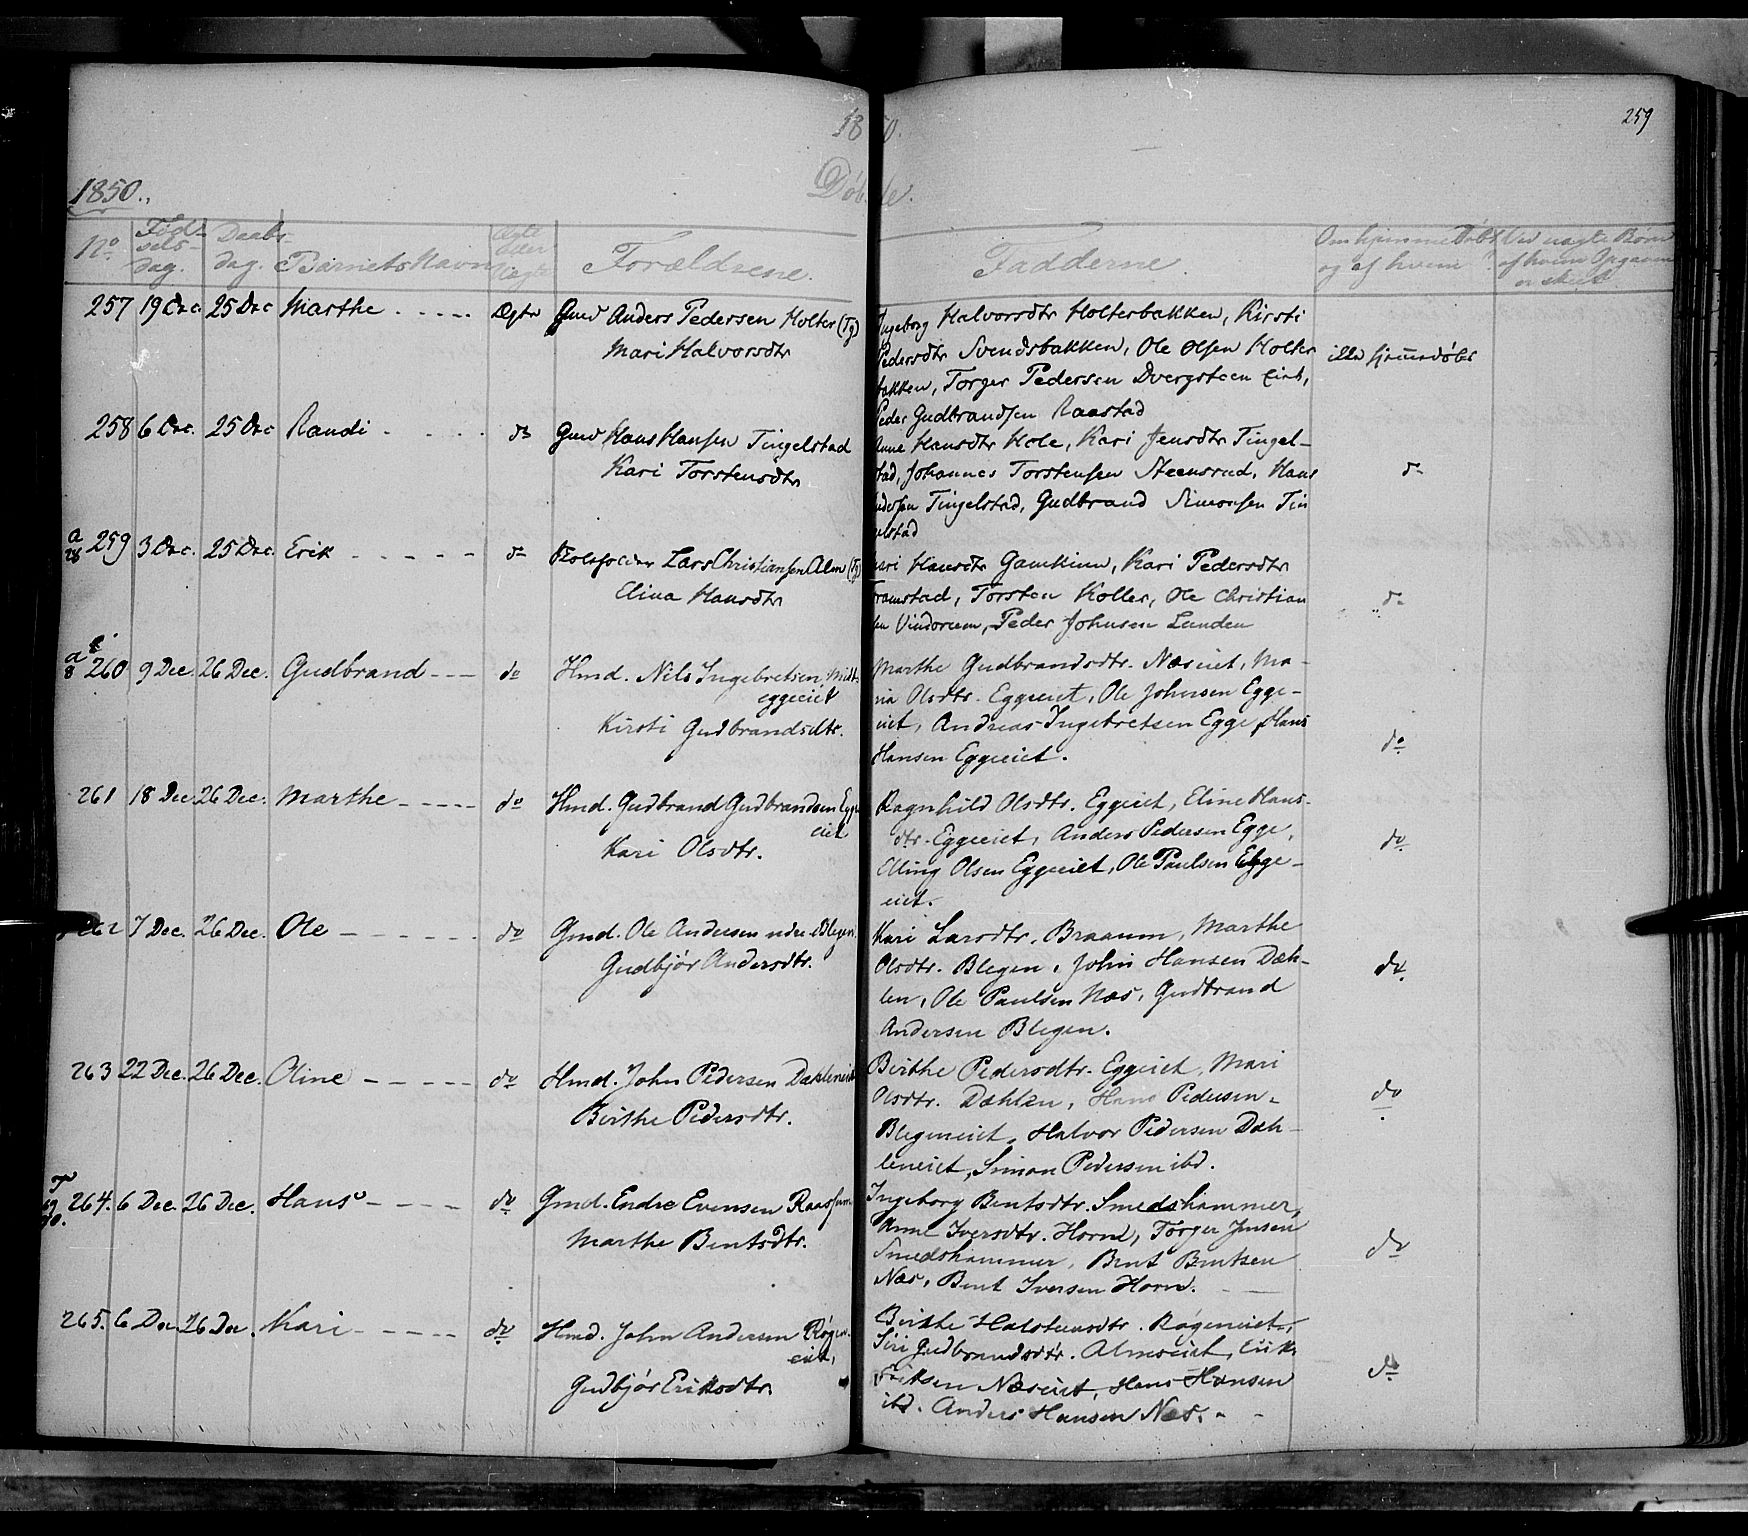 1850.
259
1850.,
Døbte.
No
Fødselsdag.
Daabsdag.
Barnets Navn
Ægte eller Uægte
Forældrene.
Fadderne.
Om hjemmedøbt og af hvem
Ved uægte Børn af hvem Opgaven er skeet
257 19 Dec. 25 Dec Marthe . . . . . Ægte Gmd Anders Pedersen Holter (Tg)
Mari Halvorsdtr
Ingeborg Halvorsdtr Holterbakken, Kirsti
Pedersdtr Svendsbakken, Ole Olsen Holter
bakken, Torger Pedersen Dvergsteen
Peder Gudbrandsen Raastad
ikke hjemmedøbt
258 6 Dec. 25 Dec Randi . . . . . do Gmd Hans Hansen Tingelstad
Kari Torstensdtr
Anne Hansdtr Hole, Kari Jensdtr Tingel-
stad, Johannes Torstensen Steensrud, Hans
Andersen Tingelstad, Gudbrand Simonsen Tin
gelstad
do
259 3 Dec. 25 Dec. Erik - - - - - do Lars Christiansen Alm (Tg)
Elina Hansdtr
Hansdtr Gamkinn, Kari Pedersdtr
Framstad, Torsten Koller, Ole Christian
sen Vindorum, Peder Johnsen Lunden
do
260 9 Dec. 26 Dec. Gudbrand - - - do Hmd. Nils Ingebretsen Midt-
eggeeiet
Kirsti Gudbrandsdtr.
Marthe Gudbrandsdtr. Næseiet, Ma-
ria Olsdtr. Eggeeiet, Ole Johnsen Egge-
eiet, Andreas Ingebretsen Egge, Hans
Hansen Eggeeiet.
do
261 18 Dec 26 Dec. Marthe - - - - - do Hmd. Gudbrand Gudbrandsen Egge
eiet
Kari Olsdtr.
Ragnhild Olsdtr. Eggeeiet, Eline Hans-
dtr. Eggeeiet, Anders Pedersen Egge,
Elling Olsen Eggeeiet, Ole Paulsen Egge-
eiet.
do
262 7 Dec. 26 Dec. Ole - - - - - - do Gmd. Ole Andersen nedre Blegen.
Gudbjør Andersdtr.
Kari Larsdtr. Braanm, Marthe
Olsdtr. Blegen, John Hansen Dæh-
len, Ole Paulsen Næs, Gudbrand
Andersen Blegen.
do.
263 22 Dec. 26 Dec. Oline - - - - - do Hmd. John Pedersen Dæhleneiet
Birthe Pedersdtr.
Birthe Pedersdtr. Eggeeiet, Mari
Olsdtr. Dæhlen, Hans Pedersen
Blegeneiet, Halvor Pedersen Dæh-
leneiet, Simon Pedersen ibd.
do
264. 6 Dec. 26 Dec. Hans - - - - do Gmd. Endre Evensen Raassum
Marthe Bentsdtr.
Ingeborg Bentsdtr. Smedshammer,
Anne Iversdtr. Horne, Torger Jensen
Smedshammer, Bent Bentsen
Næs, Bent Iversen Horn.
do
265. 6 Dec 26 Dec. Kari - - - - - do Hmd. John Andersen Røgen
eiet,
Gudbjør Eriksdtr.
Birthe Halstensdtr. Røgeneiet,
Siri Gudbrandsdtr. Almseiet, Erik
Eriksen Næseiet, Hans Hansen
ibd. Anders Hansen Næs. - -
do